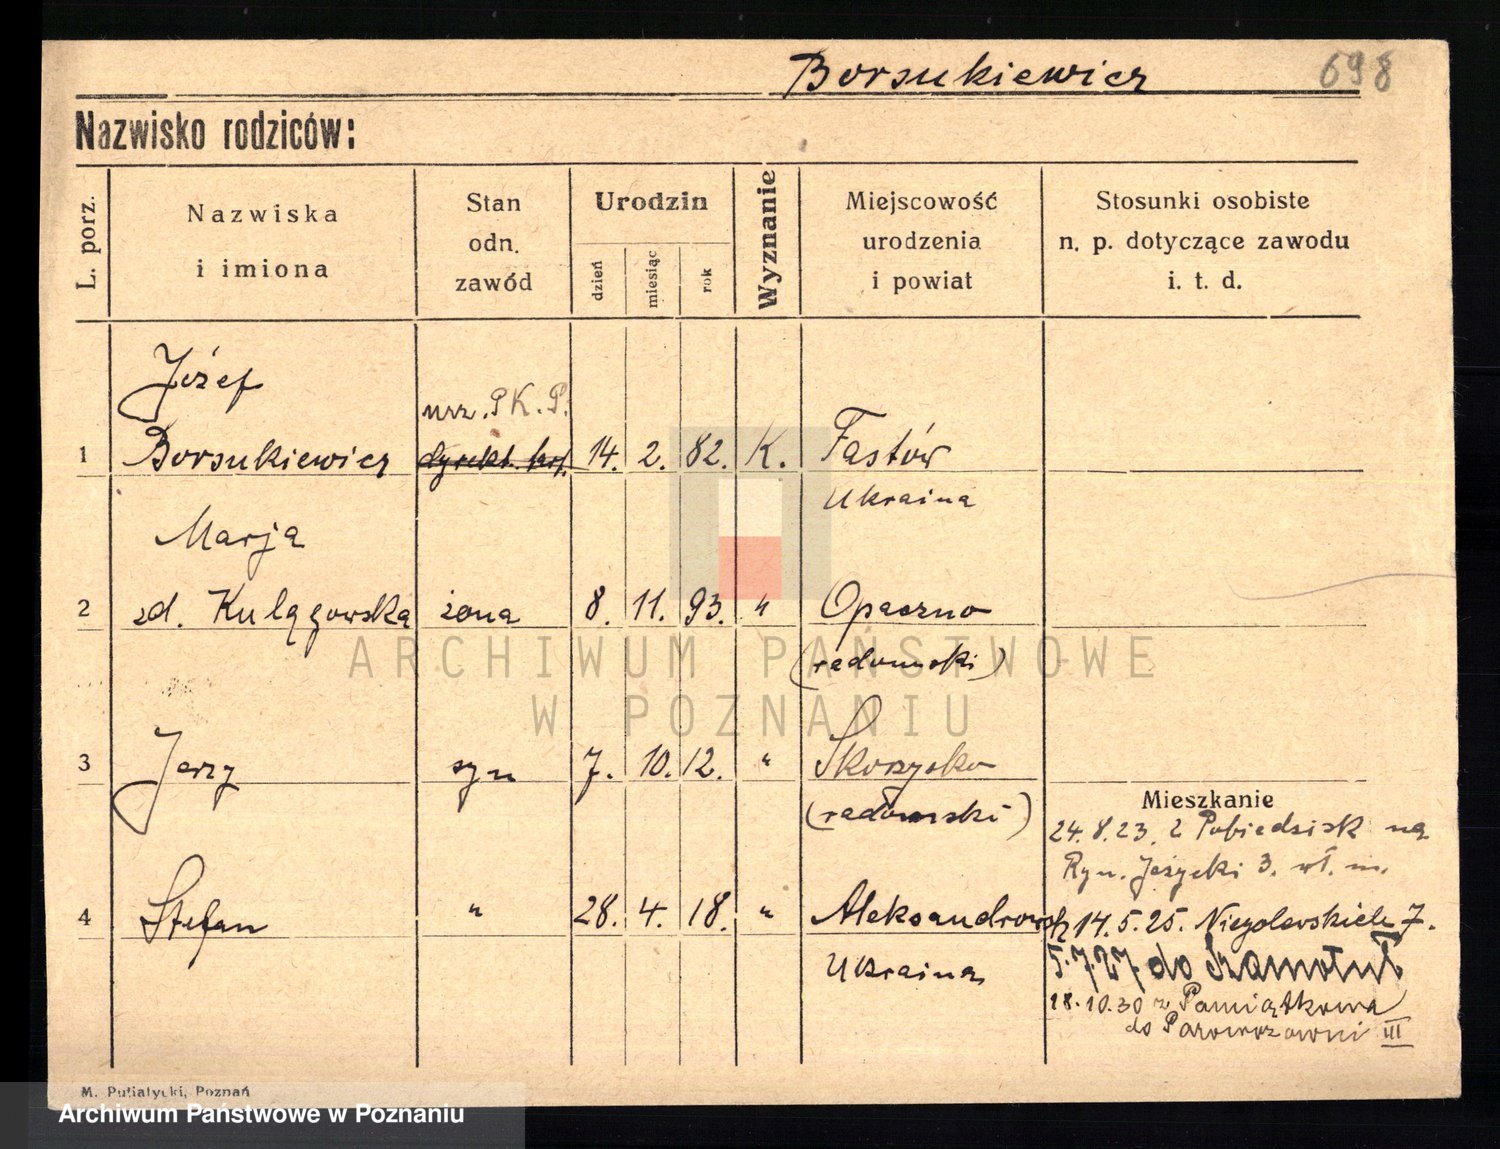 Borsukiewicz 698
Nazwisko rodziców:
L. porz.
Nazwiska
i imiona
Stan
odn.
zawód
Urodzin
dzień
miesiąc
rok
Wyznanie
Miejscowość
urodzenia
i powiat
Stosunki osobiste
n. p. dotyczące zawodu
i. t. d.
Józef
urz. P.K.P.
1 Borsukiewicz dyrekt. 14. 2. 82. K. Fastów
Ukraina
Marja
2 zd. Kulązowska żona 8. 11. 93. " Opaczno
(radomski)
3 Jerzy syn 7. 10. 12. " Skorzysko
(radomski)
Mieszkanie
24.8.23. z Pobiedzisk na
Ryn. Jeżycki 3. wł. m.
4 Stefan " 28. 4. 18. " Aleksandrowsk
14.5.25. Niegolewskich 7.
Ukraina
5.7.27 do Szamotuł
18.10.30 z Pamiątkowa
do Parowozowni III
M. Putiatycki, Poznań
ARCHIWUM PAŃSTWOWE
W POZNANIU
Archiwum Państwowe w Poznaniu